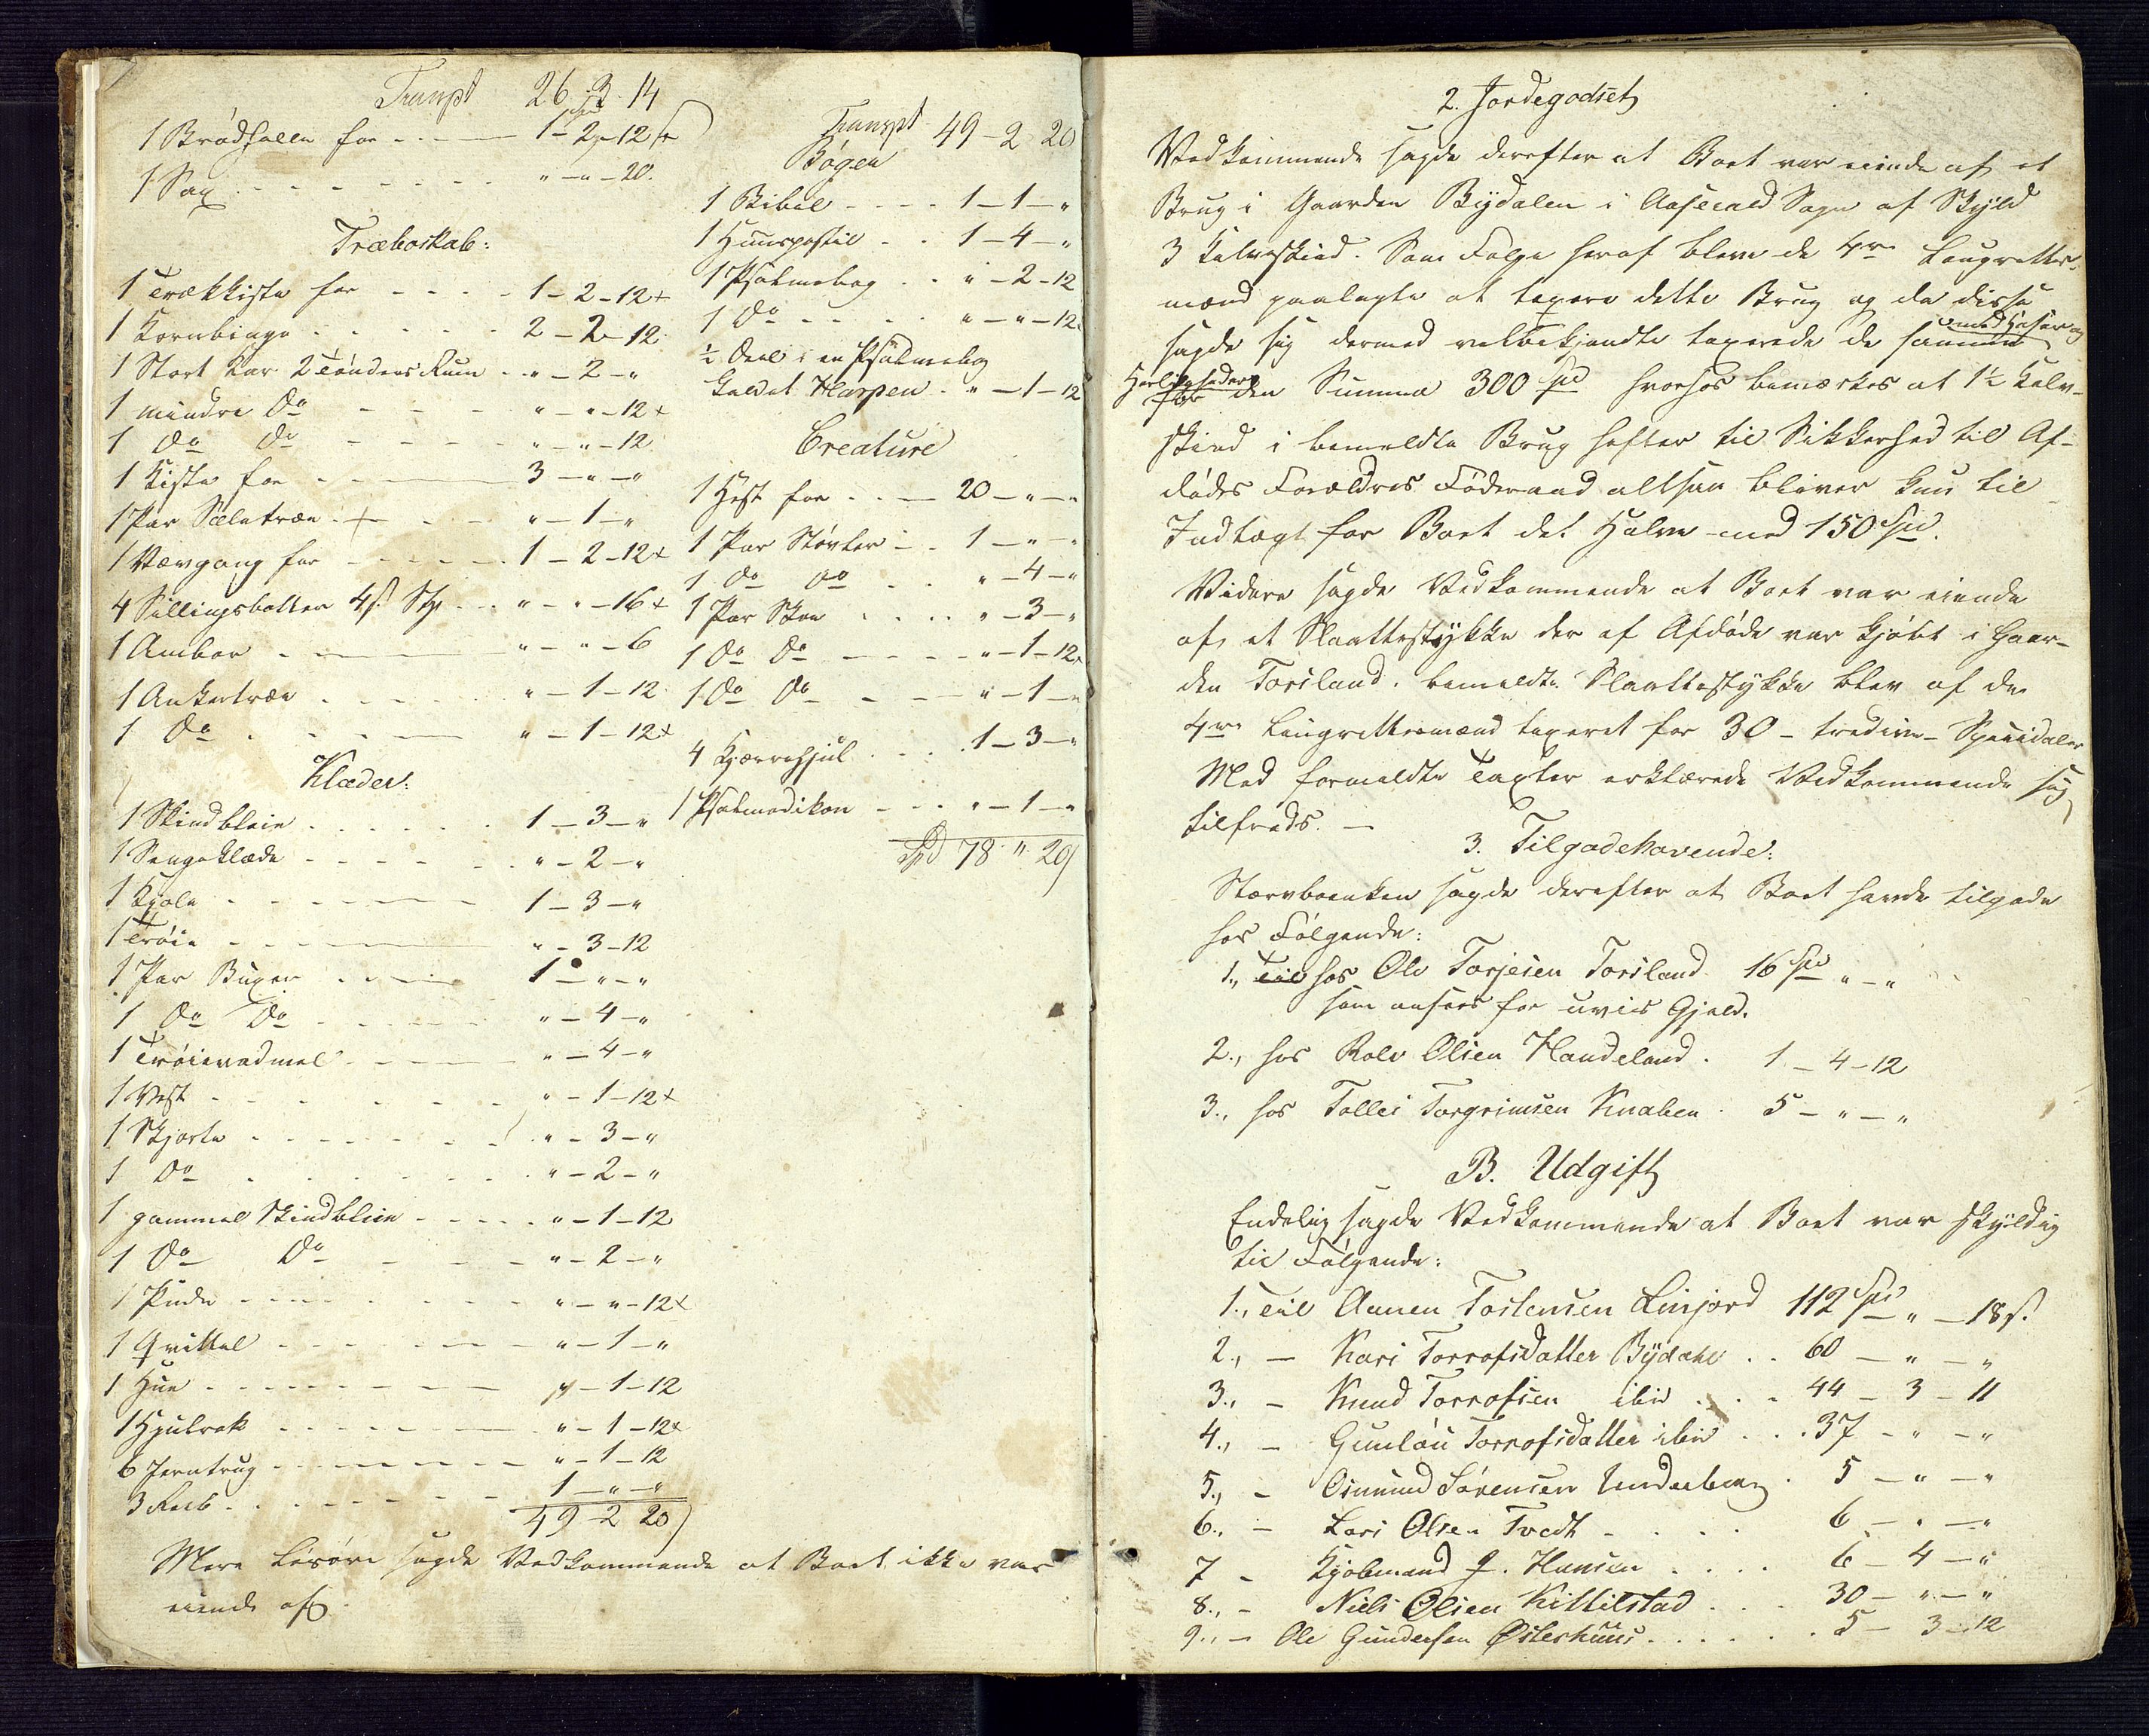 Transpt 26-3-14
1 Brødhelle for - - - 1-2-12
1 Sax - - - - "-"-20.
Træboskab:
1 Trækkiste for - - - - 1-2-12+
1 Kornbinge - - - - 2-2-12
1 Stort Kar 2 Tønders Rum - - "-2-"
1 mindre Do - - - "-"-12+
1 Do Do - - - "-"-12
1 Kiste for - - - 3-"-"
1 Par Seletræe - + - - "-1-"
1 Vævgang for - - - 1-2-12+
4 Sillingsbøtter 4s. Stp - - "-"-16+
1 Ambar - - - "-"-6
1 Ankertræe - - - "-1-12
1 Do - - - "-1-12+
Klæder:
1 Skindbleie - - - - 1-3-"
1 Sengeklæde - - - - "-2-"
1 Kjole - - - - 1-3-"
1 Trøie - - - - "-3-12
1 Par Buxer - - - 1-"-"
1 Do Do - - - "-4-"
1 Trøievadmel - - - "-4-"
1 Vest - - - - "-1-12+
1 Skjorte - - - - "-3-"
1 Do - - - - "-2-"
1 gammel Skindbleie - - - "-1-12
1 Do Do - - - "-2-"
1 Pude - - - - "-"-12+
1 Qvittel - - - - "-1-"
1 Hue - - - - "-1-12
1 Hjulrok - - - - "-1-12+
6 Jerntrug - - - - "-1-12
3 Reeb - - - - 1-"-"
49-2 20
Mere Løsøre sagde Vedkommende at Boet ikke var
eiende af.
Transpt 49-2 20
Bøger
1 Bibel - - - - 1-1-"
1 Huuspostil - - 1-4-"
1 Psalmebog - - "-2-12
1 Do - - - - "-"-12
½ Deel i en Psalmebog
Kaldet Harpen - "-1-12
Creature
1 Hest for - - - 20-"-"
1 Par Støvler - - 1-"-"
1 Do Do - - "-4-"
1 Par Skoe - - - "-3-"
1 Do Do - - - "-1-12+
1 Do Do - - - "-1-"
4 Kjærrehjul - - - 1-3-"
1 Psalmodikon - - - "-1-"
Spd 78 " 20
2. Jordegodset
Vedkommende sagde derefter at Boet var eiende af et
Brug i Gaarden Bÿdalen i Aaserald Sogn af Skÿld
3 Kalvskind. Som Følge heraf bleve de 4re Laugrettes-
mænd paalagte at taxere dette Brug og da disse
sagde sig dermed velbekjendte taxerede de samme med Huser og
Herligheder
for den Summa 300 Spd hvorhos bemærkes at 1½ Kalv-
skind i bemeldte Brug hefter til Sikkerhed til Af-
dødes Forældres Føderaad altsaa bliver kun til
Indtægt for Boet det Halve med 150 Spd.
Videre sagde Vedkommende at Boet var eiende
af et Slaattestÿkke der af Afdøde var kjøbt i Gaar-
den Torsland. bemeldte Slaattestÿkke blev af de
4re Laugrettesmænd taxeret for 30 - tredive - Speciedaler
Med formeldte Taxter erklærede Vedkommende sig
tilfreds. -
3. Tilgodehavende:
Stervboenken sagde derefter at Boet havde tilgode
hos Følgende:
1., Til hos Ole Torjesen Torsland 16 Spd "-"
som ansees for uvis Gjeld.
2., hos Rolv Olsen Haudeland. 1-4-12
3., hos Tollei Torgrimsen Knaben. 5-"-"
B. Udgift
Endelig sagde Vedkommende at Boet var skÿldig
til Følgende:
1., Til Aanen Tostensen Linjord 112 Spd "-18s.
2., - Kari Torrofsdatter Bÿdahl - - 60-"-"
3., - Knud Torrofsen ibid - - 44-3-11
4., - Gunlau Torrofsdatter ibid - - 37-"-"
5., - Osmund Sørensen Underberg - 5-"-"
6., - Lars Olsen Tvedt - - - 6-"-"
7 - Kjøbmand J. Hansen - - - 6-4-"
8., - Niels Olsen Kittilstad - - 30-"-"
9., - Ole Gundersen Østerhuus - - - 5-3-12